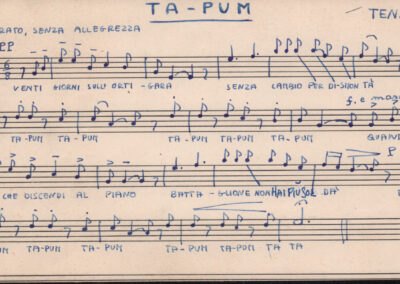 TA-PUM
TEN
RATO, SENZA ALLEGREZZA
PP
VENTI GIORNI SULL'ORTI-GARA SENZA CAMBIO PER DI-SMON TÀ
f. e mag
TA-PUM TA-PUM TA-PUM TA-PUM QUAN
P
CHE DISCENDI AL PIANO BATTA-GLIONE NON HAI PIÙ SOL DÀ
UM TA-PUM TA-PUM TA-PUM TA-PUM TA TA